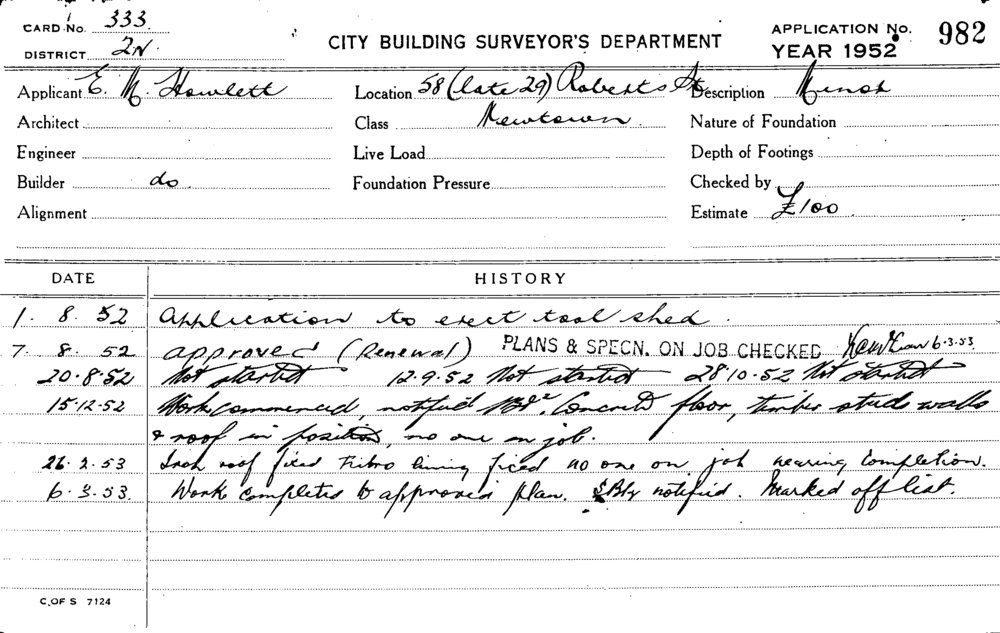 CARD No. 333.
DISTRICT 2N.
CITY BUILDING SURVEYOR'S DEPARTMENT
APPLICATION No. 982
YEAR 1952
Applicant E. M. Howlett Location 58 (late 29) Roberts St. Description Minor
Architect Class Newtown. Nature of Foundation
Engineer Live Load Depth of Footings
Builder do Foundation Pressure Checked by
Alignment Estimate £100
DATE HISTORY
1. 8. 52 Application to erect tool shed.
7. 8. 52 approved (Renewal) PLANS & SPECN. ON JOB CHECKED 6.3.53
20.8.52 Not started 12.9.52 Not started 28.10.52 Not started
15.12.52 Work commenced, notified Bdr. Concrete floor, timber studs walls
& roof in position, no one on job.
26.2.53 Iron roof fixed Fibro lining fixed no one on job nearing completion.
6.3.53. Work completed to approved plan. notified. Marked off list.
C. OF S 7124